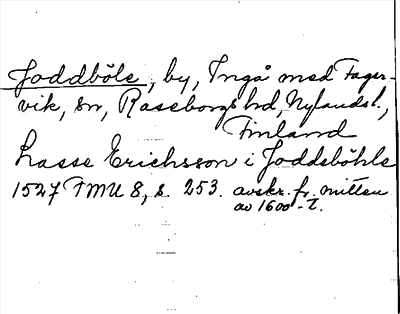 Joddböle, by, Ingå med Fager-
vik, sn, Raseborgs hd, Nylands l.,
Finland
Lasse Erichsson i Joddebôhle
1527 FMU 8, s. 253. avskr. fr. mitten
av 1600-t.